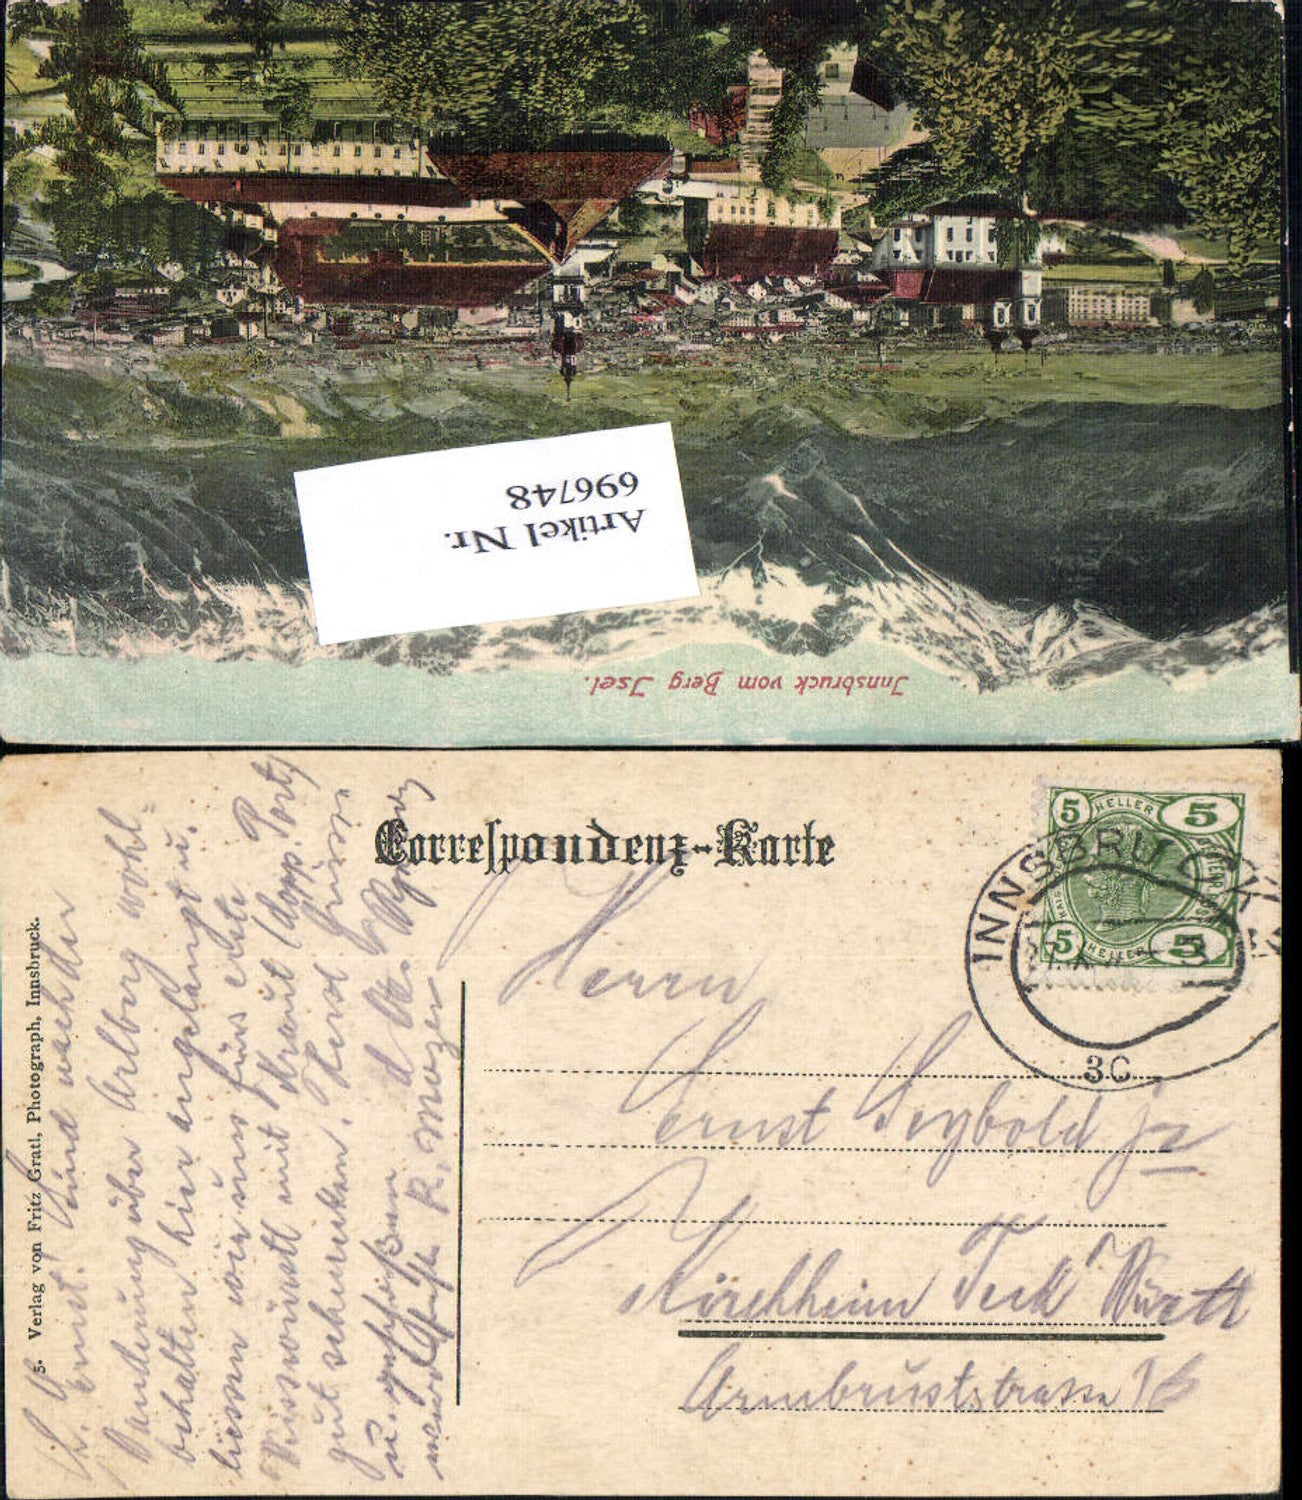 Innsbruck vom Berg Isel.
Artikel Nr.
696748
Correspondenz-Karte
5 HELLER 5
5 HELLER 5
INNSBRUCK
3C
Herrn
Ernst Seybold jr
Kirchheim Teck Württ
Armbruststrasse
5. Verlag von Fritz Gratl, Photograph, Innsbruck.
L. Ernst! Sind nach der
Wanderung über Arlberg wohl-
behalten hier angelangt u.
liessen wir uns fürs erste
Weisswürstl mit Kraut (dopp. Port)
gut schmecken. Herzl Grüsse
u.
R. Mozer